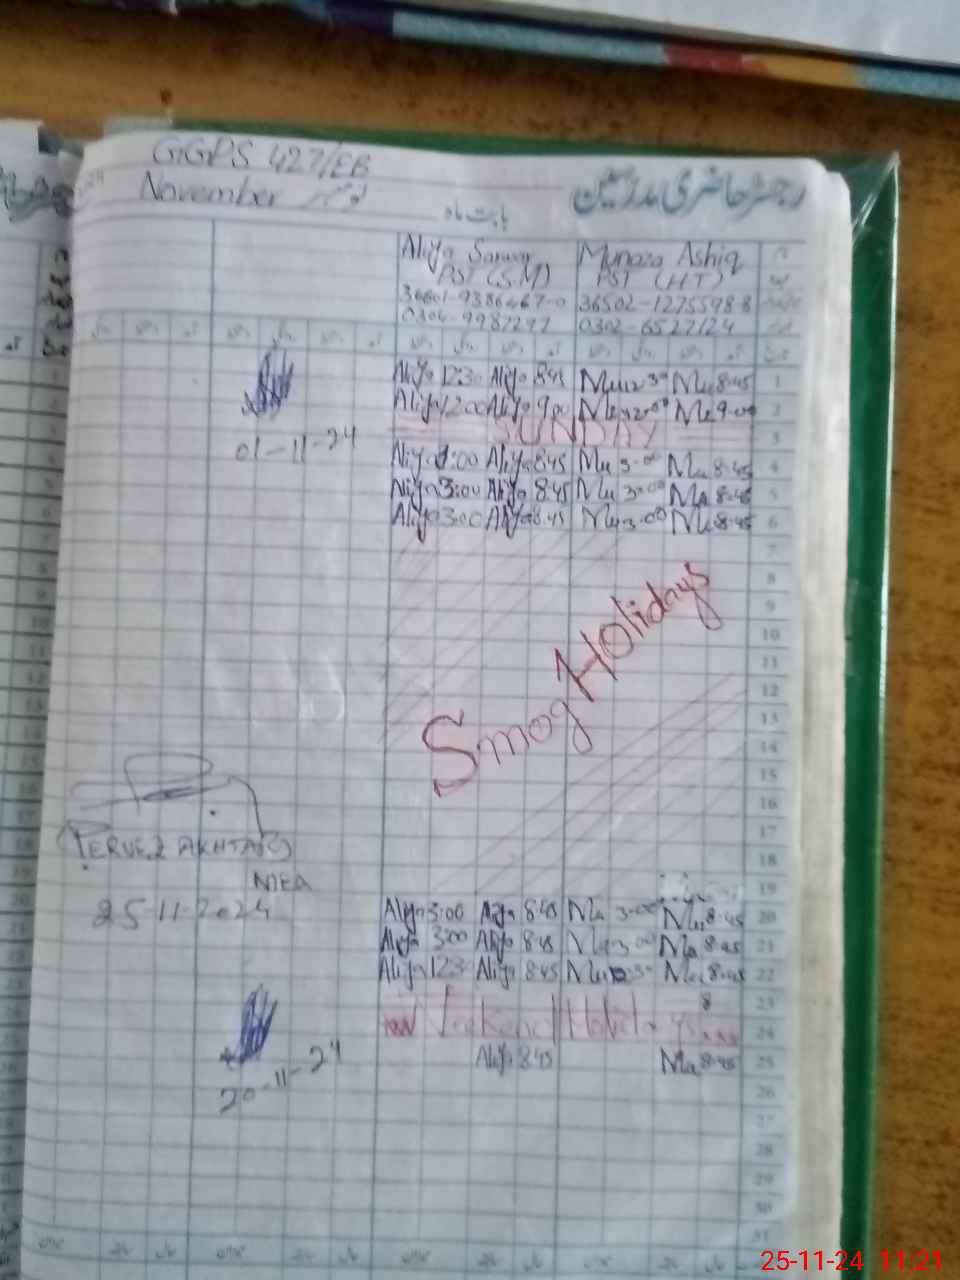 GGPS 427/EB
رجسٹر حاضری مدرسین
November نومبر
بابت ماہ
Aliya Sarwar Munaza Ashiq
PST (S.M) PST (HT)
36502-1275598-8
0302-6527124
Aliya 12:3 Aliya 8:45 Mu 12:3 Mu 8:45 1
Aliya 12:00 Aliya 9:00 Mu 12:00 Mu 9:00 2
SUNDAY 3
01-11-24
Aliya 8:45 Mu 3:00 Mu 8:45 4
Aliya 3:00 Aliya 8:45 Mu 3:00 Mu 8:45 5
Aliya 3:00 Aliya 8:45 Mu 3:00 Mu 8:45 6
7
8
9
10
11
12
13
14
15
16
17
18
19
Smog Holidays
(PERVEZ AKHTAR)
MEA
25-11-2024
Aliya 3:00 Aliya 8:45 Mu 3:00 Mu 8:45 20
Aliya 3:00 Aliya 8:45 Mu 3:00 Mu 8:45 21
Aliya 12:3 Aliya 8:45 Mu Mu 8:45 22
23
Weekend Holidays 24
Aliya 8:45 Mu 8:45 25
20-11-24
26
27
28
29
30
31
25-11-24 11:21